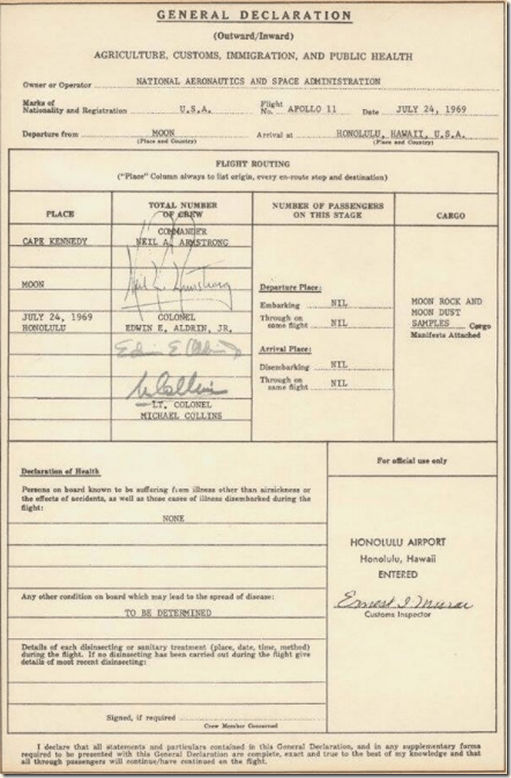 GENERAL DECLARATION
(Outward/Inward)
AGRICULTURE, CUSTOMS, IMMIGRATION, AND PUBLIC HEALTH
Owner or Operator NATIONAL AERONAUTICS AND SPACE ADMINISTRATION
Marks of
Nationality and Registration U.S.A. Flight No. APOLLO 11 Date JULY 24, 1969
Departure from MOON Arrival at HONOLULU, HAWAII, U.S.A.
(Place and Country) (Place and Country)
FLIGHT ROUTING
("Place" Column always to list origin, every en-route step and destination)
PLACE
TOTAL NUMBER
OF CREW
NUMBER OF PASSENGERS
ON THIS STAGE
CARGO
CAPE KENNEDY
MOON
JULY 24, 1969
HONOLULU
COMMANDER
NEIL A. ARMSTRONG
Neil A. Armstrong
COLONEL
EDWIN E. ALDRIN, JR.
Edwin E Aldrin Jr
M Collins
LT. COLONEL
MICHAEL COLLINS
Departure Place:
Embarking NIL
Through on
same flight NIL
Arrival Place:
Disembarking NIL
Through on
same flight NIL
MOON ROCK AND
MOON DUST
SAMPLES Cargo
Manifests Attached
Declaration of Health
Persons on board known to be suffering from illness other than airsickness or
the effects of accidents, as well as those cases of illness disembarked during the
flight:
NONE
Any other condition on board which may lead to the spread of disease:
TO BE DETERMINED
Details of each disinsecting or sanitary treatment (place, date, time, method)
during the flight. If no disinsecting has been carried out during the flight give
details of most recent disinsecting:
Signed, if required
Crew Member Concerned
For official use only
HONOLULU AIRPORT
Honolulu, Hawaii
ENTERED
Ernest I. Murai
Customs Inspector
I declare that all statements and particulars contained in this General Declaration, and in any supplementary forms
required to be presented with this General Declaration are complete, exact and true to the best of my knowledge and that
all through passengers will continue/have continued on the flight.